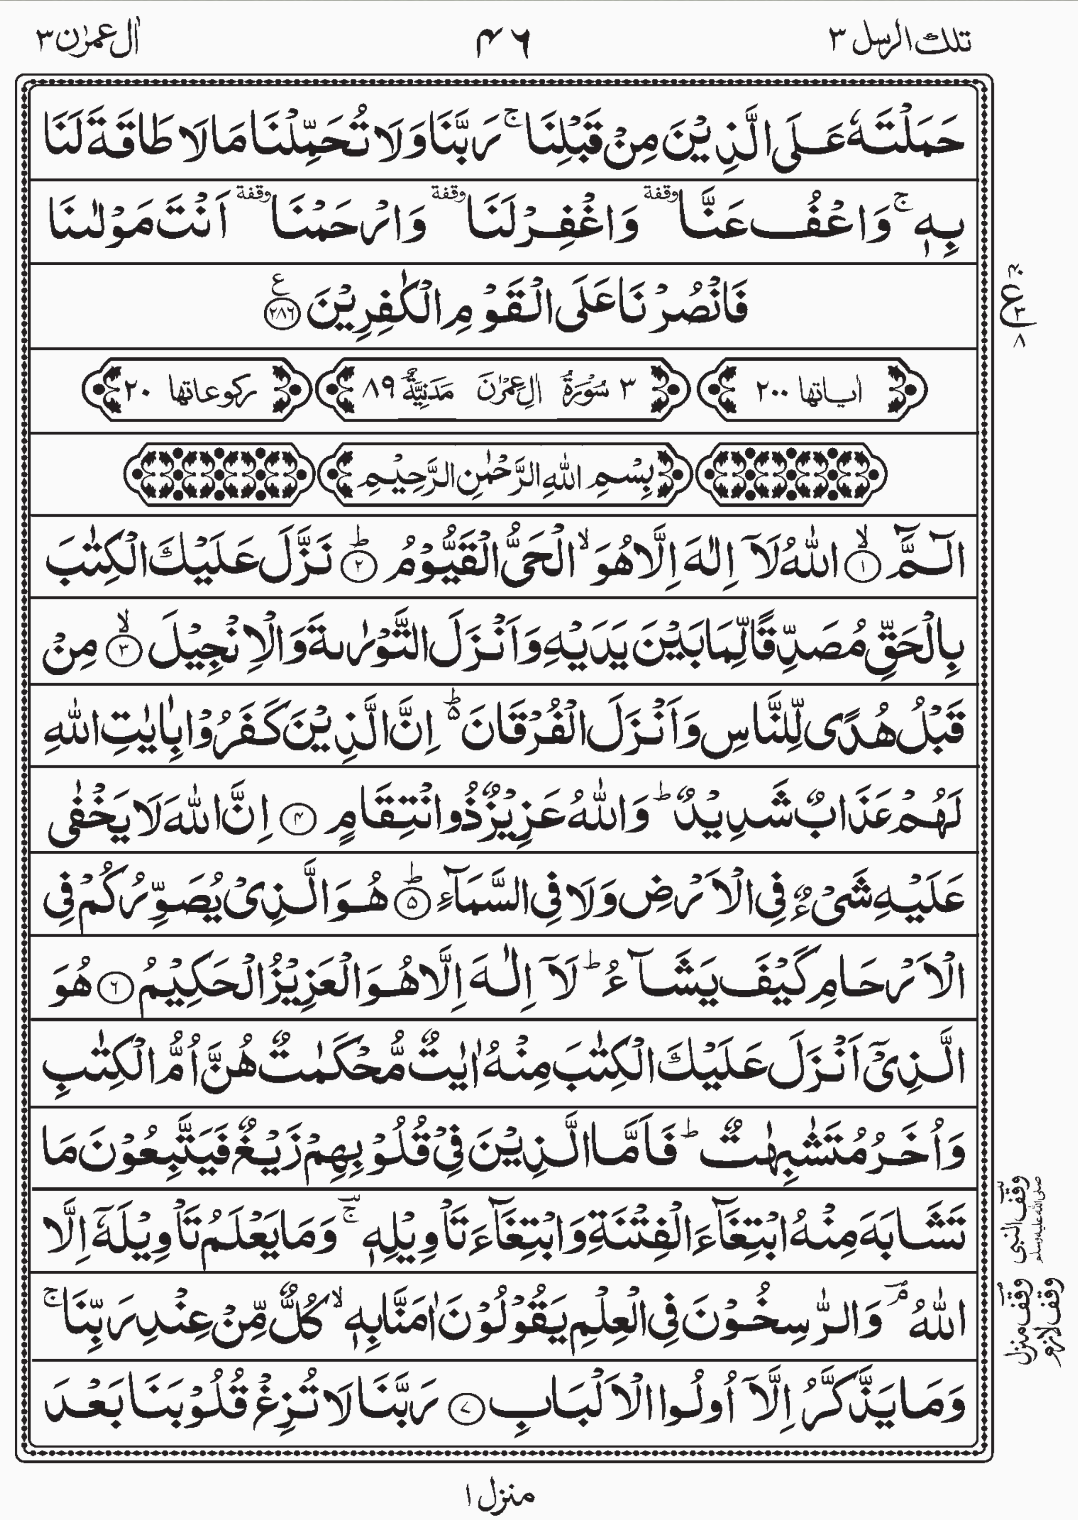 تلك الرسل ٣
٤٦
اٰل عمرٰن ٣
حَمَلْتَهٗ عَلَى الَّذِيْنَ مِنْ قَبْلِنَا ۚ رَبَّنَا وَلَا تُحَمِّلْنَا مَا لَا طَاقَةَ لَنَا
بِهٖ ۚ وَاعْفُ عَنَّا وقفة وَاغْفِرْ لَنَا وقفة وَارْحَمْنَا وقفة اَنْتَ مَوْلٰىنَا
فَانْصُرْنَا عَلَى الْقَوْمِ الْكٰفِرِيْنَ ع ٢٨٦
اٰياتها ٢٠٠
٣ سُوْرَةُ اٰلِ عِمْرٰنَ مَدَنِيَّةٌ ٨٩
ركوعاتها ٢٠
بِسْمِ اللّٰهِ الرَّحْمٰنِ الرَّحِيْمِ
الٓمَّٓ ۙ ١ اللّٰهُ لَاۤ اِلٰهَ اِلَّا هُوَ ۙ الْحَيُّ الْقَيُّوْمُ ؕ ٢ نَزَّلَ عَلَيْكَ الْكِتٰبَ
بِالْحَقِّ مُصَدِّقًا لِّمَا بَيْنَ يَدَيْهِ وَاَنْزَلَ التَّوْرٰىةَ وَالْاِنْجِيْلَ ۙ ٣ مِنْ
قَبْلُ هُدًى لِّلنَّاسِ وَاَنْزَلَ الْفُرْقَانَ ؕ۬ اِنَّ الَّذِيْنَ كَفَرُوْا بِاٰيٰتِ اللّٰهِ
لَهُمْ عَذَابٌ شَدِيْدٌ ؕ وَاللّٰهُ عَزِيْزٌ ذُو انْتِقَامٍ ٤ اِنَّ اللّٰهَ لَا يَخْفٰى
عَلَيْهِ شَيْءٌ فِي الْاَرْضِ وَلَا فِي السَّمَآءِ ؕ ٥ هُوَ الَّذِيْ يُصَوِّرُكُمْ فِي
الْاَرْحَامِ كَيْفَ يَشَآءُ ؕ لَاۤ اِلٰهَ اِلَّا هُوَ الْعَزِيْزُ الْحَكِيْمُ ٦ هُوَ
الَّذِيْۤ اَنْزَلَ عَلَيْكَ الْكِتٰبَ مِنْهُ اٰيٰتٌ مُّحْكَمٰتٌ هُنَّ اُمُّ الْكِتٰبِ
وَاُخَرُ مُتَشٰبِهٰتٌ ؕ فَاَمَّا الَّذِيْنَ فِيْ قُلُوْبِهِمْ زَيْغٌ فَيَتَّبِعُوْنَ مَا
تَشَابَهَ مِنْهُ ابْتِغَآءَ الْفِتْنَةِ وَابْتِغَآءَ تَاْوِيْلِهٖ ۚ وَمَا يَعْلَمُ تَاْوِيْلَهٗۤ اِلَّا
اللّٰهُ ۘ وَالرّٰسِخُوْنَ فِي الْعِلْمِ يَقُوْلُوْنَ اٰمَنَّا بِهٖ ۙ كُلٌّ مِّنْ عِنْدِ رَبِّنَا ۚ
وَمَا يَذَّكَّرُ اِلَّاۤ اُولُوا الْاَلْبَابِ ٧ رَبَّنَا لَا تُزِغْ قُلُوْبَنَا بَعْدَ
ع ٣ ٨
وقف النبي صلى الله عليه وسلم
وقف منزل
وقف لازم
منزل ١